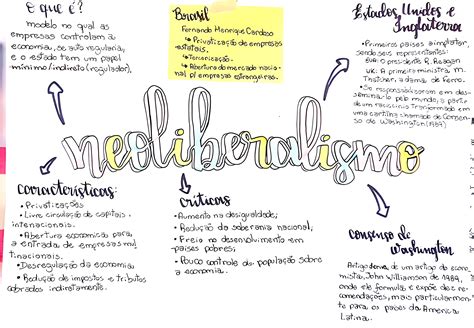 O que é?
modelo no qual as
empresas controlam a
economia, se auto regularia,
e o estado tem um papel
mínimo/indireto (regulador).
Brasil
Fernando Henrique Cardoso
Privatização de empresas
estatais.
Terceirização.
Abertura do mercado nacio-
nal p/ empresas estrangeiras.
Estados Unidos e
Inglaterra
• Primeiros países a implantar,
sendo seus representantes:
EUA: O presidente R. Reagan
UK: A primeira ministra M.
Thatcher, a dama de ferro.
• Se responsabilizaram em des-
seminá-lo pelo mundo, a partir
de um raciocínio transformado em
uma cartilha chamada de Consen-
so de Washington (1989)
neoliberalismo
características:
• Privatizações
• Livre circulação de capitais
internacionais.
• Abertura economica para
a entrada de empresas mul
tinacionais.
• Desregulação da economia
• Redução de impostos e tributos
cobrados indiretamente.
críticas
• Aumento na desigualdade;
• Redução da soberania nacional;
• Freio no desenvolvimento em
países pobres;
• Pouco controle da população sobre
a economia.
Consenso de
Washington
de um artigo do eco-
mista, John Williamson de 1989,
onde ele formula e expõe dez re-
comendações, mais particularmen-
te para os países da America
Latina.